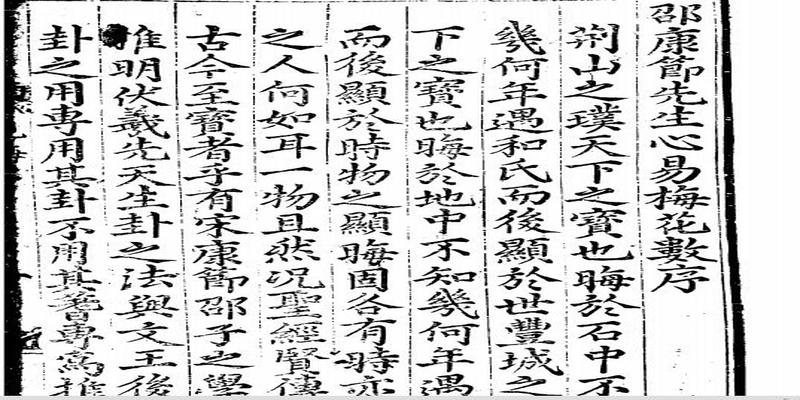 邵康節先生心易梅花數序
荆山之璞天下之寳也晦於石中不
幾何年遇和氏而後顯於世豐城之
下之寳也晦於地中不知幾何年遇
而後顯於時物之顯晦固各有時亦
之人何如耳一物且然况聖經賢傳
古今至寳者乎有宋康節邵子之學
推明伏羲先天生卦之法與文王後
卦之用専用其卦不用其蓍専寫推